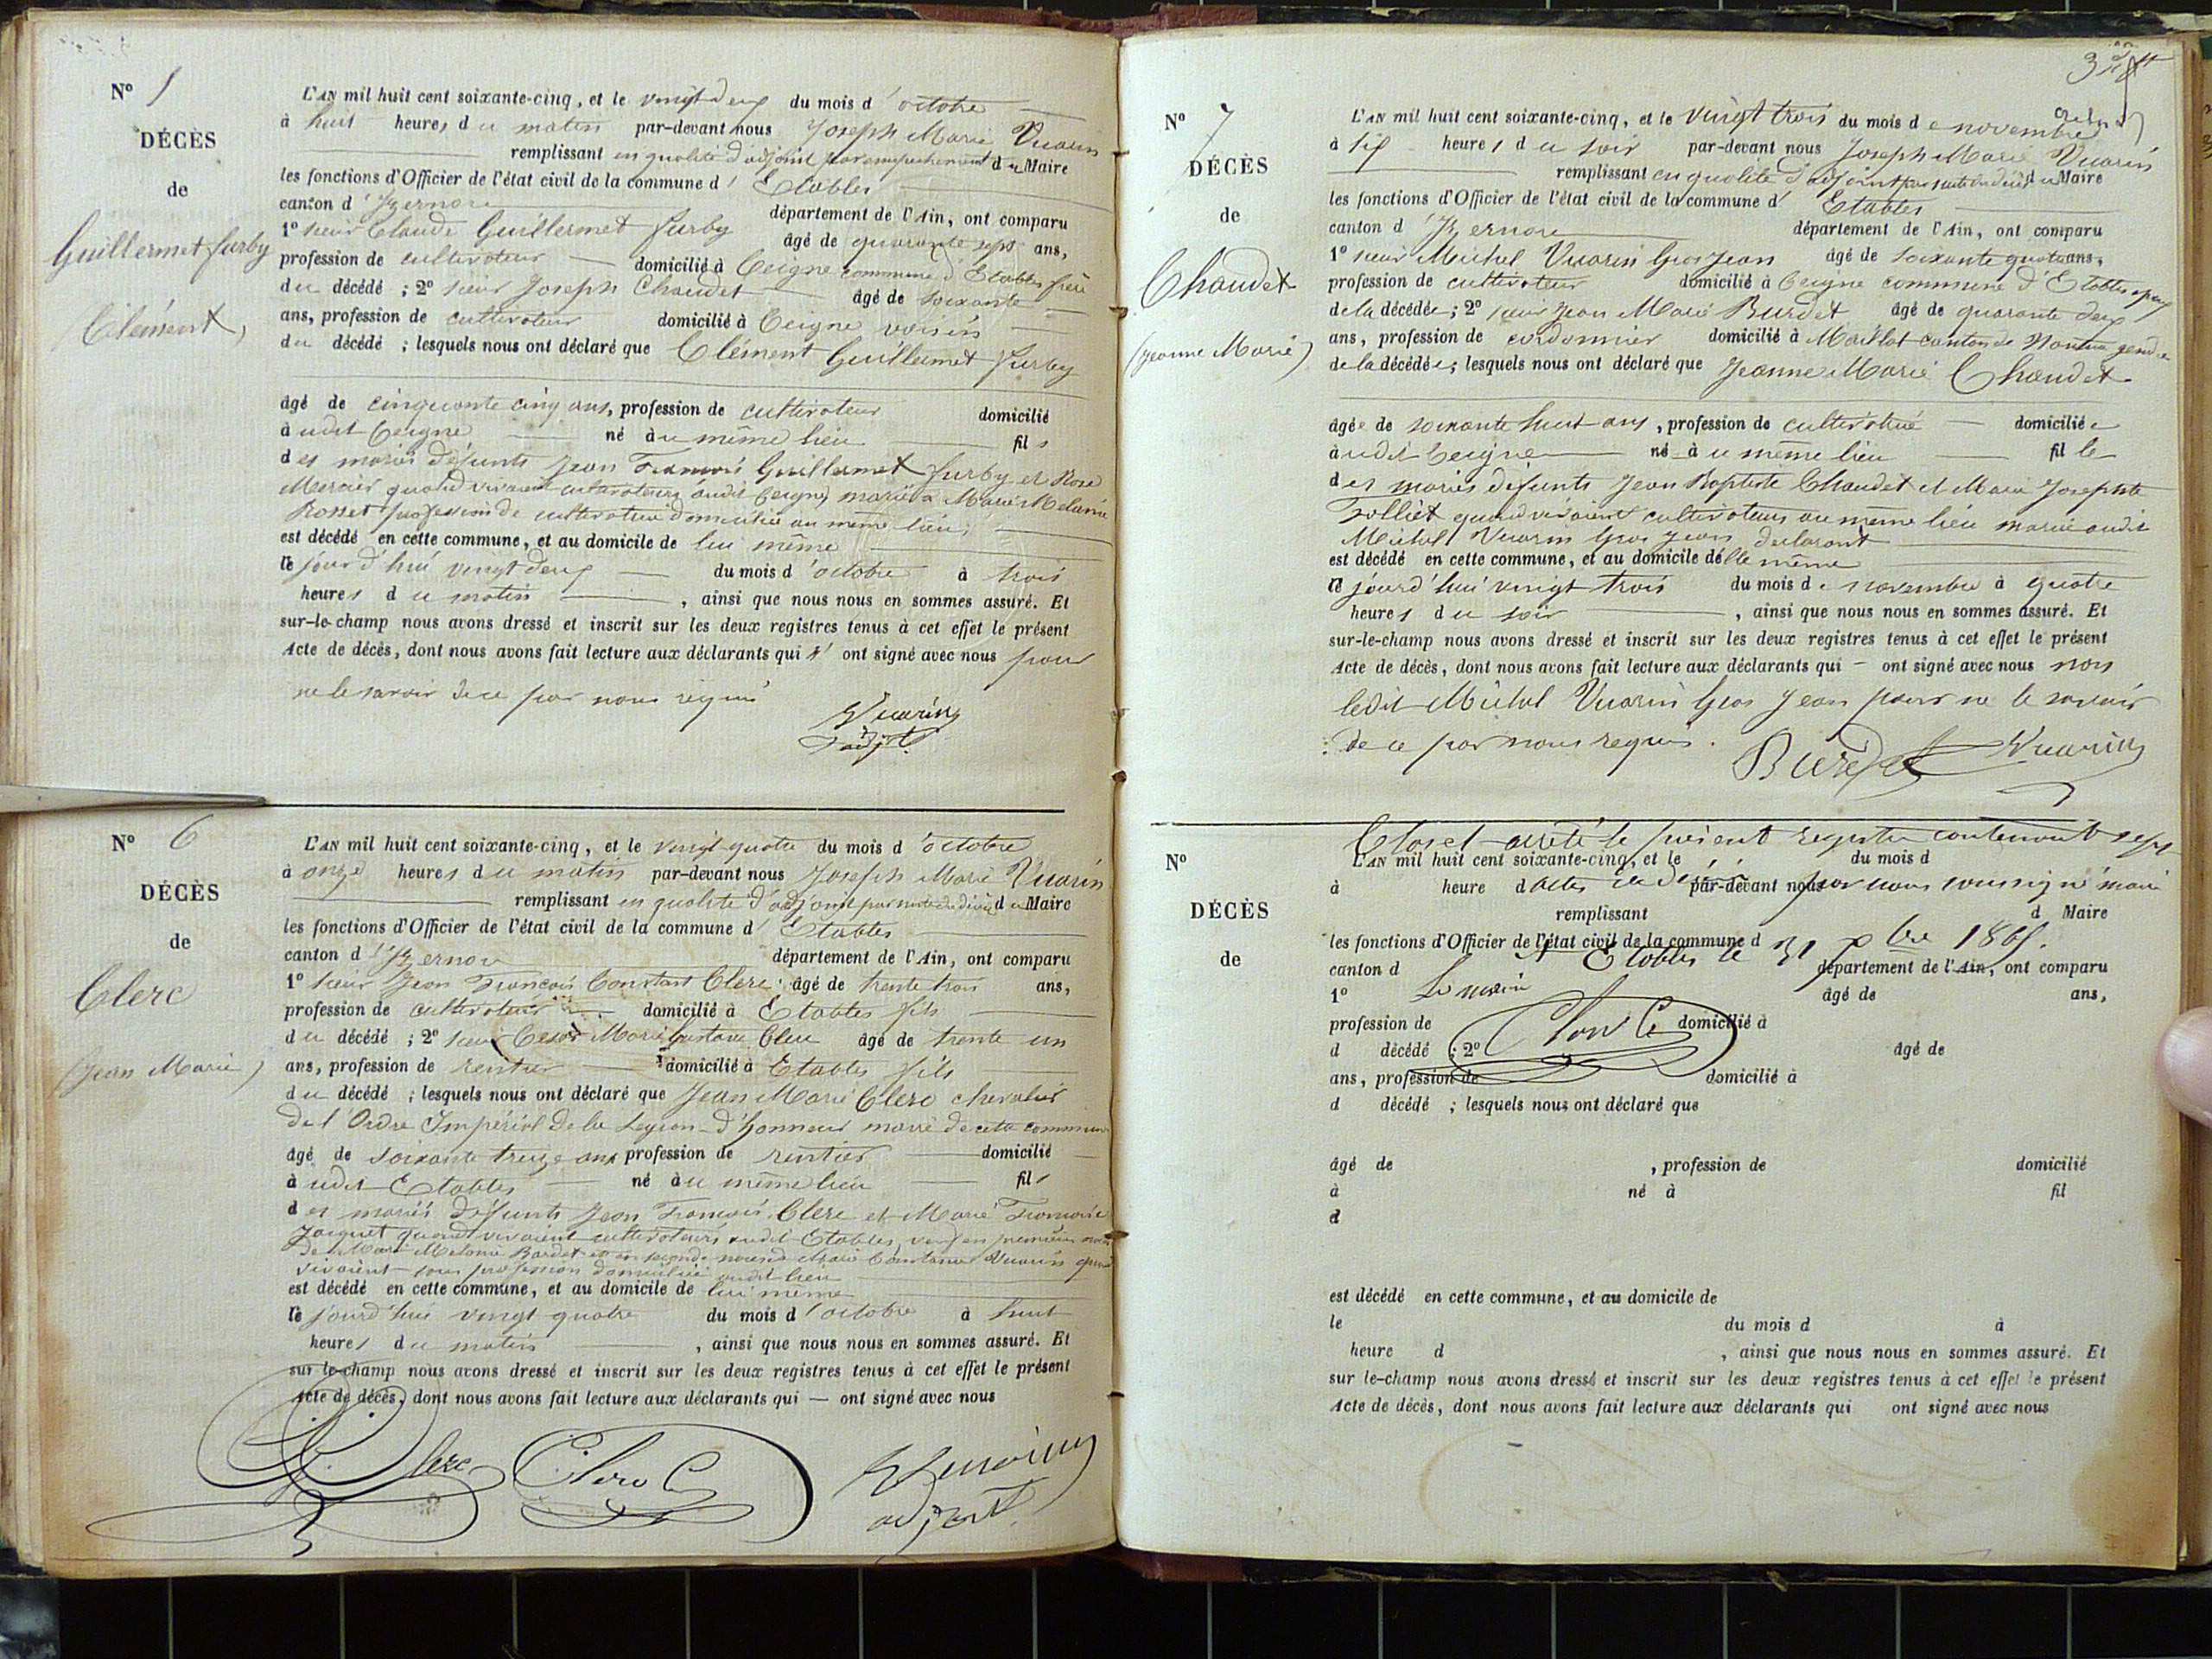 Nº 5
DÉCÈS
de
Guillermet furby
Clément,
L'AN mil huit cent soixante-cinq, et le vingt deux du mois d'octobre
à huit heures du matin par-devant nous Joseph Marie Vuarin
remplissant en qualité d'adjoint par empêchement du Maire
les fonctions d'Officier de l'état civil de la commune d'Etables
canton d'Izernore département de l'Ain, ont comparu
1º sieur Claude Guillermet furby âgé de quarante sept ans,
profession de cultivateur domicilié à Ceigne commune d'Etables frère
du décédé ; 2º sieur Joseph Chaudet âgé de soixante
ans, profession de cultivateur domicilié à Ceigne voisin
du décédé ; lesquels nous ont déclaré que Clément Guillermet furby
âgé de cinquante cinq ans, profession de cultivateur domicilié
à udit Ceigne né au même lieu fils
des mariés défunts Jean François Guillermet furby et Rose
Mercier quand vivaient cultivateurs audit Ceigne, marié à Marie Melanie
Rosset profession de cultivatrice domiciliée au même lieu ;
est décédé en cette commune, et au domicile de lui même
le jourd'hui vingt deux du mois d'octobre à trois
heures du matin, ainsi que nous nous en sommes assuré. Et
sur-le-champ nous avons dressé et inscrit sur les deux registres tenus à cet effet le présent
Acte de décès, dont nous avons fait lecture aux déclarants qui n'ont signé avec nous pour
ne le savoir de ce par nous requis
Vuarin
adjt
Nº 6
DÉCÈS
de
Clerc
(Jean Marie)
L'AN mil huit cent soixante-cinq, et le vingt quatre du mois d'octobre
à onze heures du matin par-devant nous Joseph Marie Vuarin
remplissant en qualité d'adjoint par suite du décès du Maire
les fonctions d'Officier de l'état civil de la commune d'Etables
canton d'Izernore département de l'Ain, ont comparu
1º sieur Jean François Constant Clerc âgé de trente trois ans,
profession de cultivateur domicilié à Etables fils
du décédé ; 2º sieur César Marie Gustave Clerc âgé de trente un
ans, profession de rentier domicilié à Etables fils
du décédé ; lesquels nous ont déclaré que Jean Marie Clerc chevalier
de l'Ordre Impérial de la Legion d'honneur maire de cette commune
âgé de soixante treize ans profession de rentier domicilié
à udit Etables né au même lieu fils
des mariés défunts Jean François Clerc et Marie Françoise
Jacquet quand vivaient cultivateurs audit Etables, veuf en premières noces
de Marie Melanie Bardet et en seconde noces de Marie Constance Vuarin quand
vivaient sans profession domiciliée audit lieu
est décédé en cette commune, et au domicile de lui même
le jourd'hui vingt quatre du mois d'octobre à huit
heures du matin, ainsi que nous nous en sommes assuré. Et
sur le-champ nous avons dressé et inscrit sur les deux registres tenus à cet effet le présent
Acte de décès, dont nous avons fait lecture aux déclarants qui — ont signé avec nous
Clerc Clerc G Vuarin
adjoint
Nº 7
DÉCÈS
de
Chaudet
(Jeanne Marie)
L'AN mil huit cent soixante-cinq, et le vingt trois du mois de novembre
à six heures du soir par-devant nous Joseph Marie Vuarin
remplissant en qualité d'adjoint par suite du décès du Maire
les fonctions d'Officier de l'état civil de la commune d'Etables
canton d'Izernore département de l'Ain, ont comparu
1º sieur Michel Vuarin Gros Jean âgé de soixante quatre ans,
profession de cultivateur domicilié à Ceigne commune d'Etables époux
de la décédée ; 2º sieur Jean Marie Burdet âgé de quarante deux
ans, profession de cordonnier domicilié à Maillat canton de Nantua gendre
de la décédée ; lesquels nous ont déclaré que Jeanne Marie Chaudet
âgée de soixante huit ans, profession de cultivatrice domiciliée
à udit Ceigne né à u même lieu fille
des mariés défunts Jean Baptiste Chaudet et Marie Josephte
Tolliet quand vivaient cultivateurs au même lieu mariée audit
Michel Vuarin Gros Jean declarant
est décédé en cette commune, et au domicile d'elle même
le jourd'hui vingt trois du mois de novembre à quatre
heures du soir, ainsi que nous nous en sommes assuré. Et
sur-le-champ nous avons dressé et inscrit sur les deux registres tenus à cet effet le présent
Acte de décès, dont nous avons fait lecture aux déclarants qui — ont signé avec nous non
ledit Michel Vuarin Gros Jean pour ne le savoir
de ce par nous requis.
Burdet Vuarin
Clos et arrêté le présent registre contenant sept
actes de décès par nous soussigné maire
A Etables le 31 xbre 1865.
Le maire
Clerc G
Nº
DÉCÈS
de
L'AN mil huit cent soixante-cinq, et le du mois d
à heure d par-devant nous
remplissant d Maire
les fonctions d'Officier de l'état civil de la commune d
canton d département de l'Ain, ont comparu
1º âgé de ans,
profession de domicilié à
d décédé ; 2º âgé de
ans, profession de domicilié à
d décédé ; lesquels nous ont déclaré que
âgé de , profession de domicilié
à né à fil
d
est décédé en cette commune, et au domicile de
le du mois d à
heure d , ainsi que nous nous en sommes assuré. Et
sur le-champ nous avons dressé et inscrit sur les deux registres tenus à cet effet le présent
Acte de décès, dont nous avons fait lecture aux déclarants qui ont signé avec nous